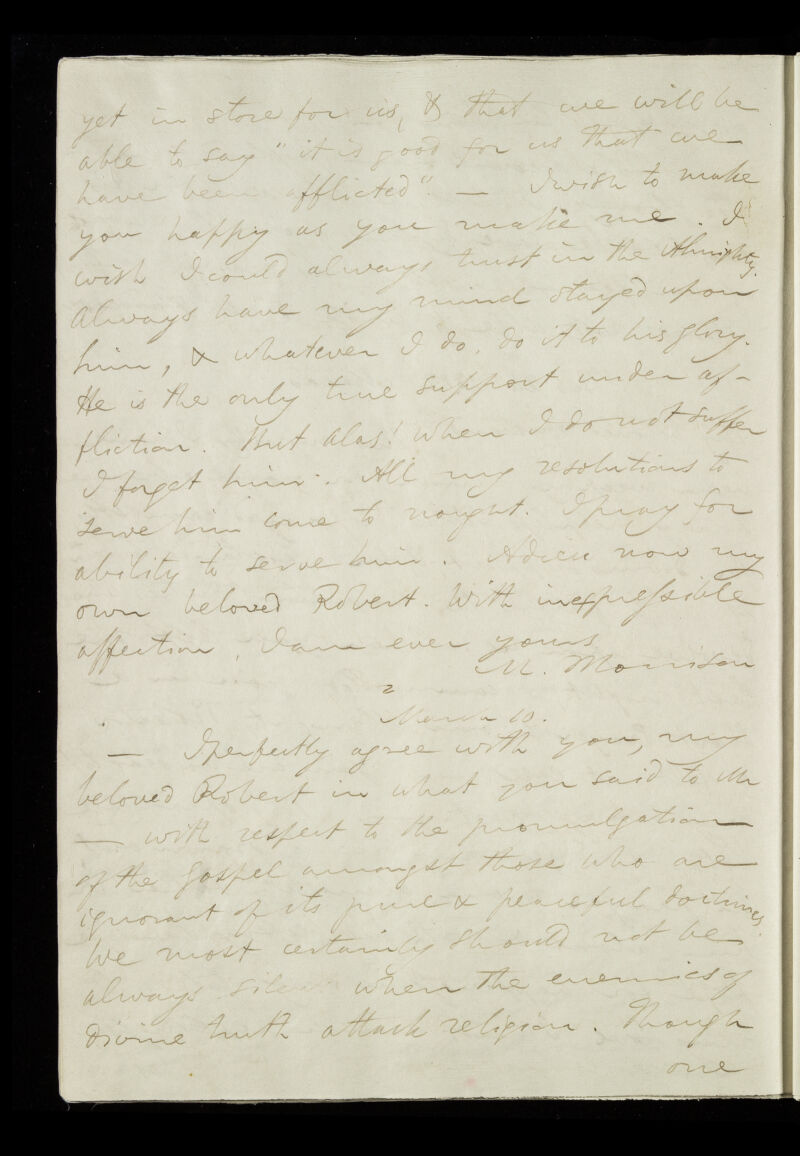 yet in store for us, & that we will be
able to say "it is good for us that we
have been afflicted". — I wish to make
you happy as you make me. I
wish I could always trust in the Almighty.
Always have my mind stayed upon
him, & whatever I do, do it to his glory.
He is the only true support under af-
fliction. But alas! when I do not suffer
I forget him. All my resolutions to
serve him come to nought. I pray for
ability to serve him. Adieu now my
own beloved Robert. With inexpressible
affection, I am ever yours
M. Morrison
2
March 10.
— I perfectly agree with you, my
beloved Robert in what you said to Mr
— with respect to the promulgation
of the Gospel amongst those who are
ignorant of its pure & peaceful doctrines.
We most certainly should not be
always silent when the enemies of
divine truth attack religion. Though
one